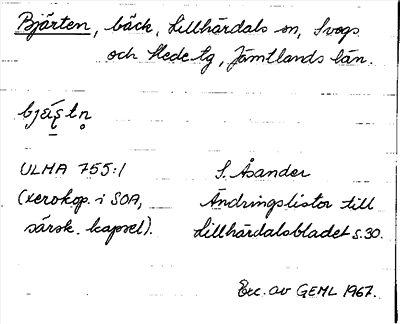 Bjärten, bäck, Lillhärdals sn, Svegs
och Hede tg, Jämtlands län.
ULMA 755:1
S. Åsander
(xerokop. i SOA,
Ändringslistor till
särsk. kapsel).
Lillhärdalsbladet s. 30.
Exc. av GEML 1967.